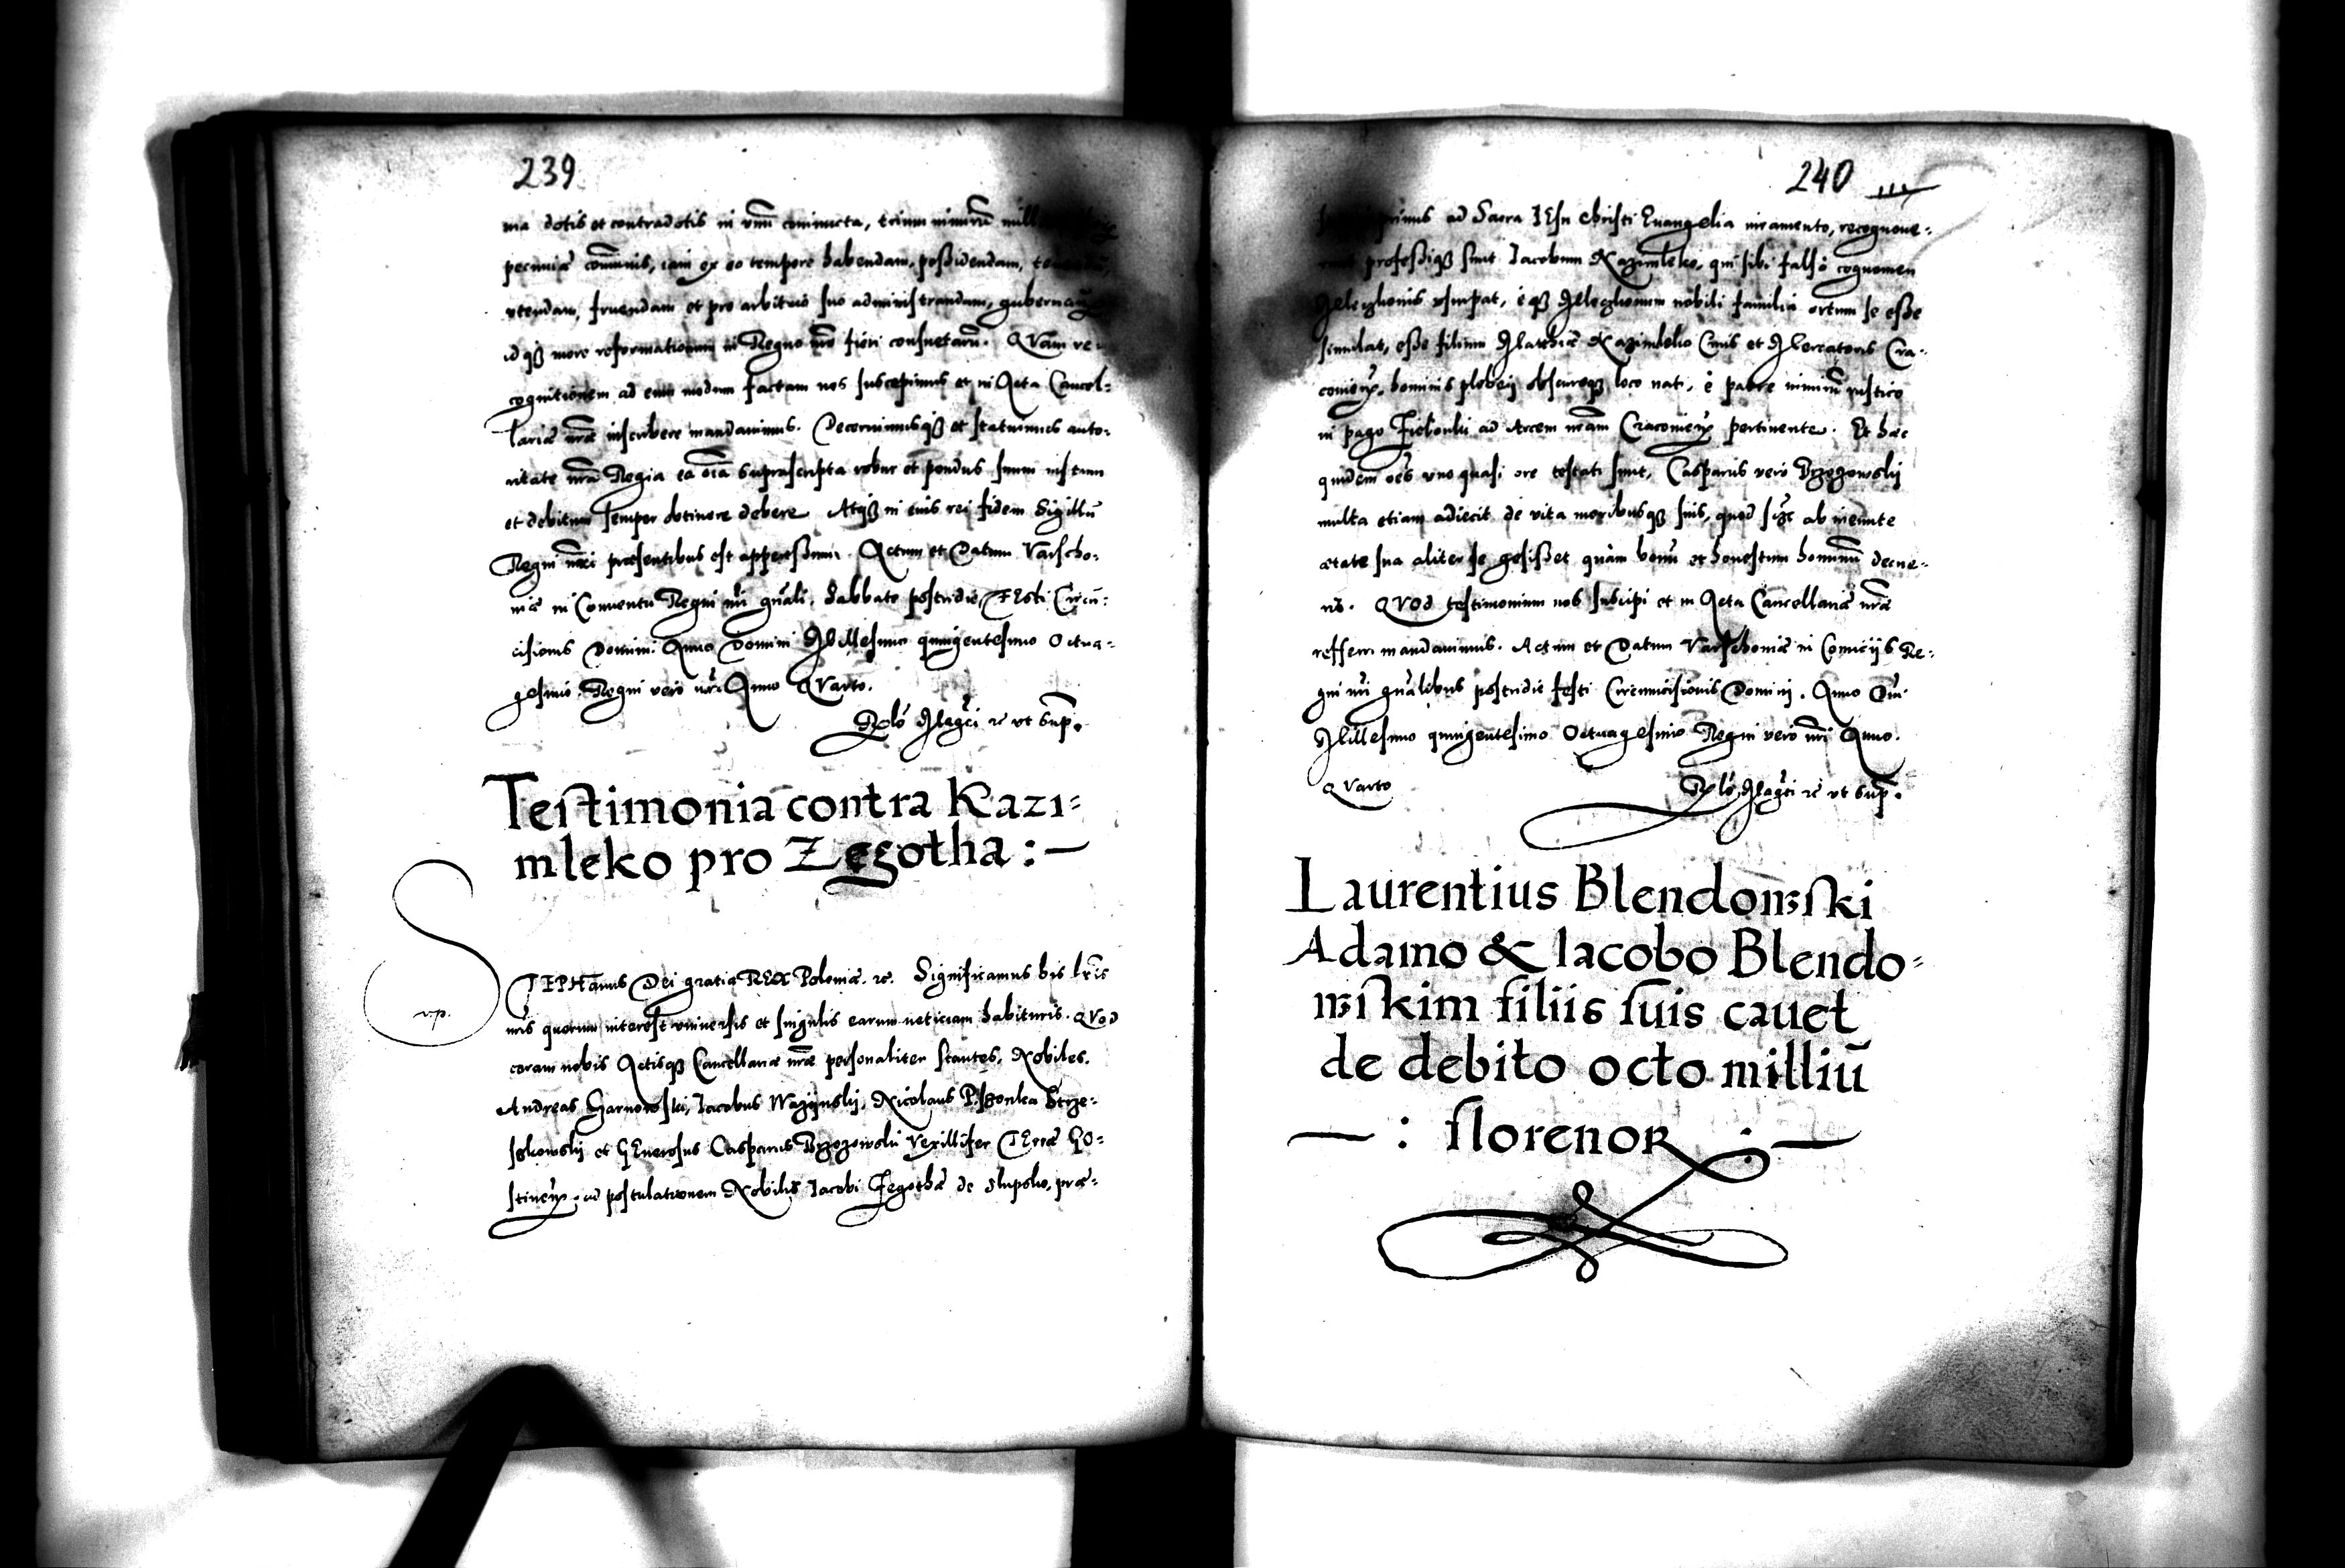 239
ma dotis et contradotis in vnū coniuncta, trium nimirū mill
pecuniæ coīmunis, iam ex eo tempore habendam, possidendam,
vtendam, fruendam et pro arbitrio suo administrandam, gubernan
idqꝫ more reformationum in Regno nr̄o fieri consuetarū. QVam re
cognitionem ad eum modum factam nos suscepimus et in Acta Cancel-
lariæ nr̄æ inscribere mandauimus. Decernimusqꝫ et statuimus auto-
ritate nr̄a Regia ea oīa suprascripta robur et pondus suum iustum
et debitum semper obtinere debere Atqꝫ in eius rei fidem Sigillū
Regni nr̄i præsentibus est appensum. Actum et Datum Varscho-
uiæ in Conuentu Regni nr̄i gnāli, Sabbato postridie FEsti Circū-
cisionis Domini. Anno Domini Millesimo quingentesimo Octua-
gesimo. Regni vero nr̄i Anno QVarto.
Rlō Magci rc vt sup.
Testimonia contra Kazi-
mleko pro Zegotha :—
STEPHanus Dei gratia REX Poloniæ. rc. Significamus his lr̄is
nr̄is quorum interest vniuersis et singulis earum noticiam habituris. QVod
coram nobis Actisqꝫ Cancellariæ nr̄æ personaliter stantes, Nobiles.
Andreas Sarnowski, Jacobus Wazynsky, Nicolaus Pszonka Strze-
szkowsky et GEnerosus Casparus Brzozowski Vexillifer TErræ GO-
stinen. ad postulationem Nobilis Jacobi Zegothæ de Slupsko, præ-
240
primus ad Sacra IEsu christi Euangelia iuramento, recognoue-
professiqꝫ sunt Jacobum Kazimleko, qui sibi falso cognomen
Meleghonis vsurpat, eqꝫ Meleghonum nobili familia ortum se esse
simulat, esse filium Matthiæ Kazimleko Ciuis et Mercatoris Cra-
couien. hominis plebeij obscuroqꝫ loco nati, e patre nimirū rustico
in pago Zielonki ad Arcem nr̄am Cracouien pertinente. Et hæc
quidem oēs vno quasi ore testati sunt, Casparus vero Brzozowsky
multa etiam adiecit de vita moribusqꝫ suis, quod ab ineunte
ætate sua aliter se gesisset quàm bonū et honestum hominū dece-
ret. QVod testimonium nos suscipi et in Acta Cancellariæ nr̄æ
referri mandauimus. Actum et Datum Varschouiæ in Comicijs Re-
gni nr̄i gnālibus postridie festi Circumcisionis Domini. Anno Dni
Millesimo quingentesimo Octuagesimo Regni vero nr̄i Anno.
QVarto Rlō Magci rc vt sup.
Laurentius Blendowski
Adamo & Iacobo Blendo-
wskim filiis suis cauet
de debito octo milliū
— : florenoꝝ :—